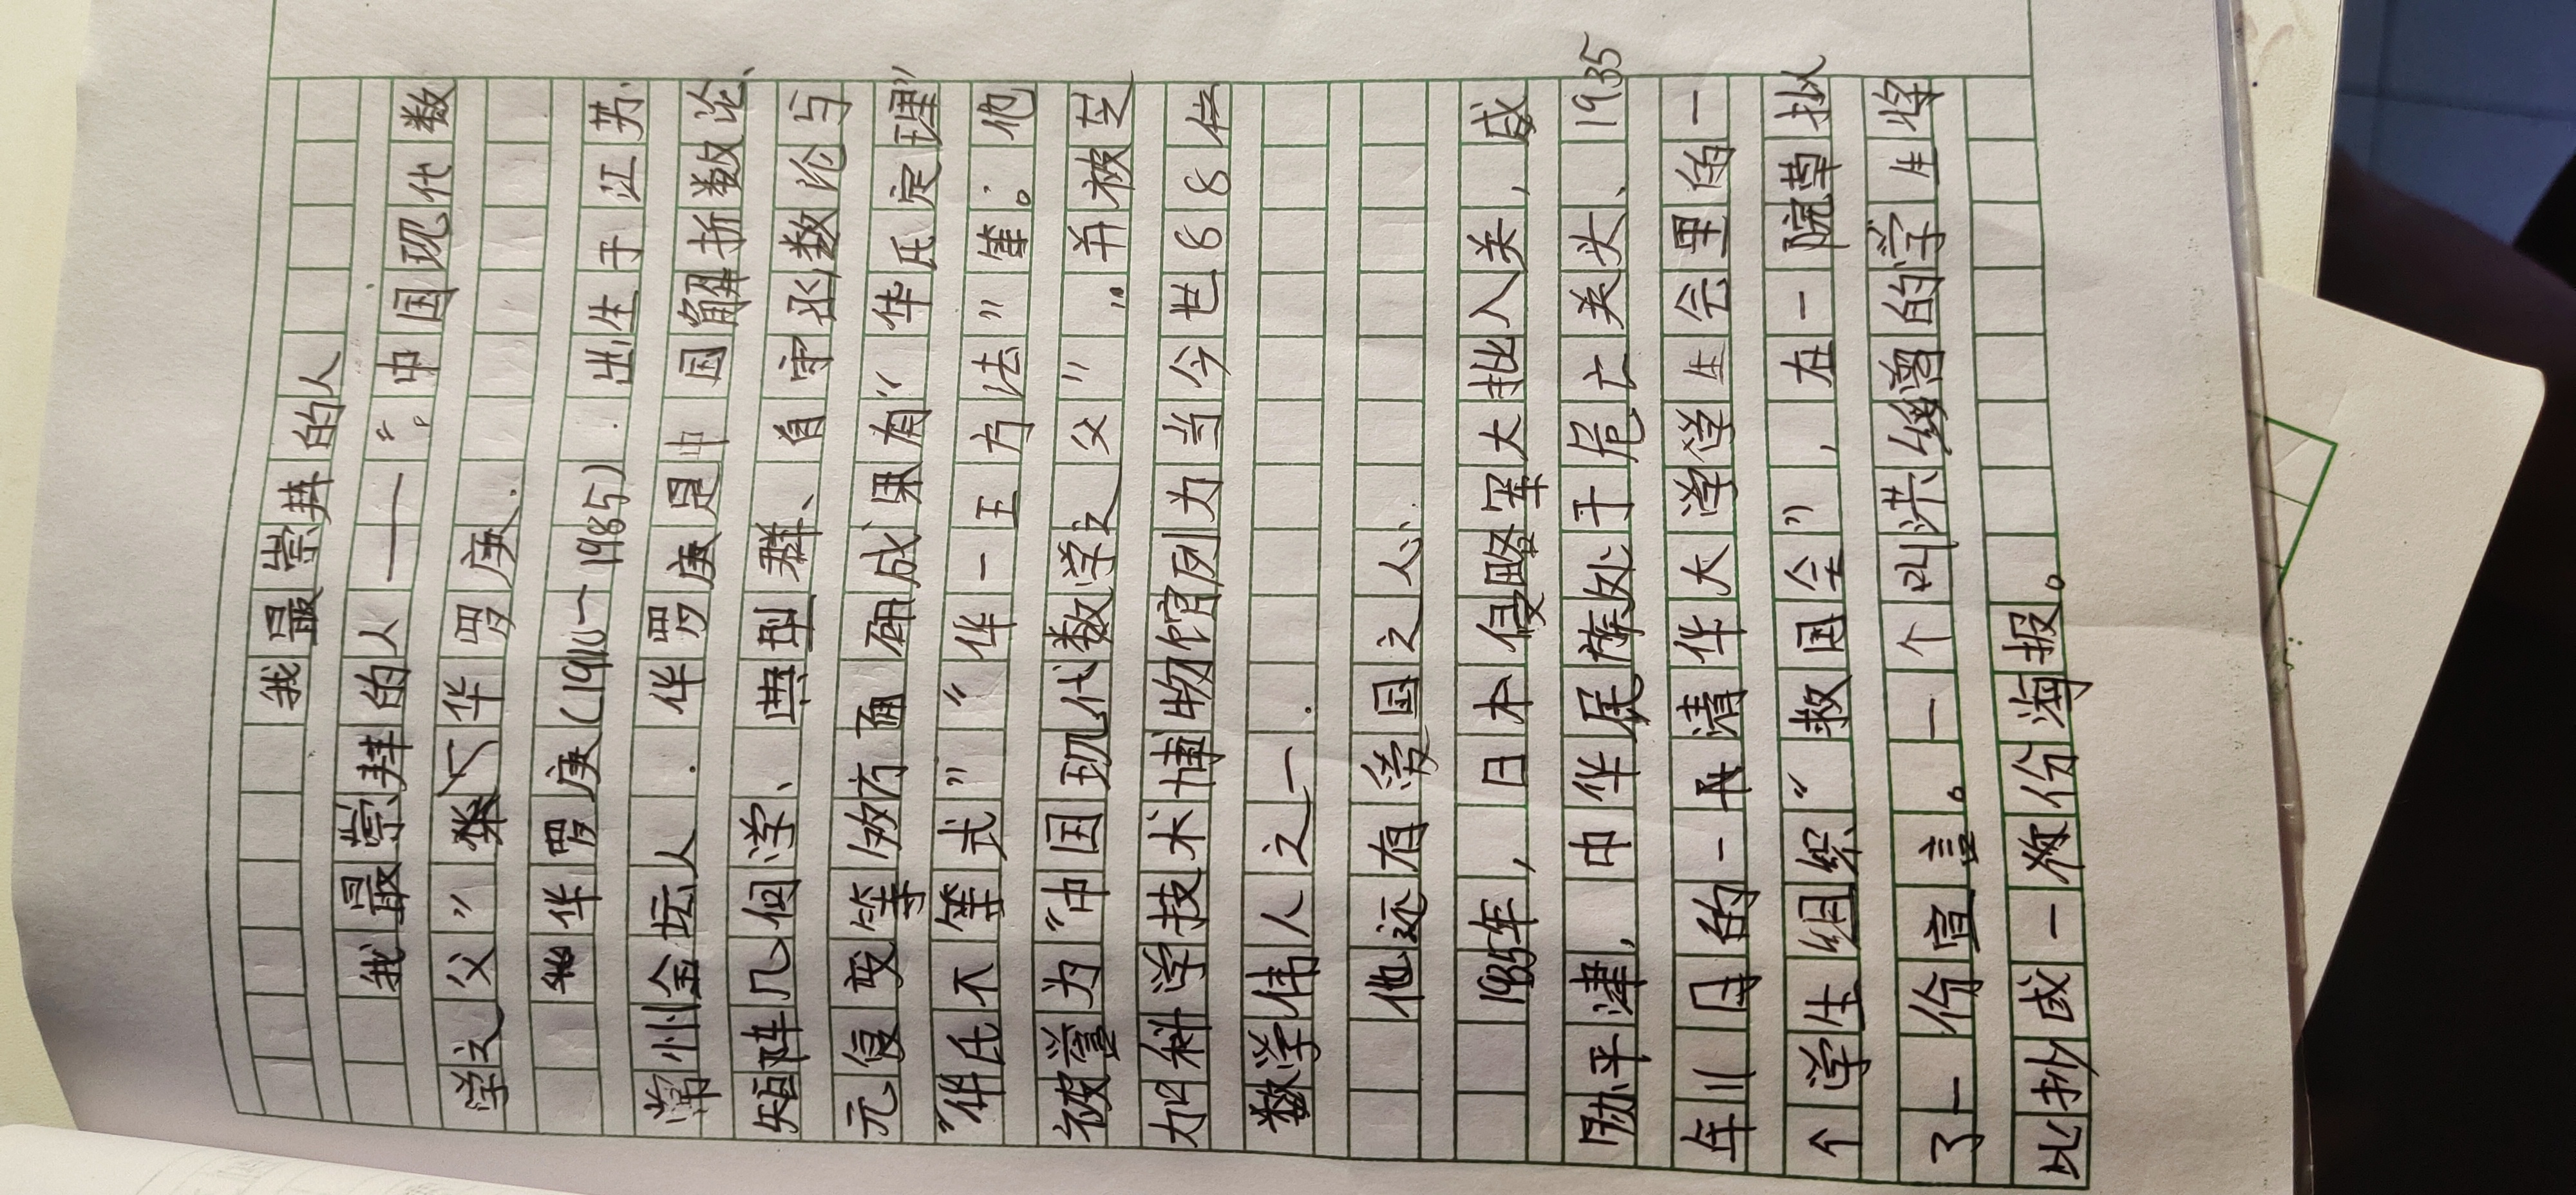 我最崇拜的人
我最崇拜的人——“中国现代数
学之父”华罗庚.
华罗庚(1910—1985).出生于江苏
常州金坛人.华罗庚是中国解折数论、
矩阵几何学、典型群、自守函数论与
元复变等多方面研成果有“华氏定理”
“华氏不等式”“华—王方法”等。他
被誉为“中国现代数学之父”.并被芝
加哥科学技术博物馆列为当今世88位
数学伟人之一.
他还有爱国之心.
1935年,日本侵略军大批入关,威
胁平津,中华民族处于危亡关头、1935
年11月的一天清华大学学生会里的一
个学生组织“救国会”,在一院草拟
了一份宣言。一个叫洪绶曾的学生将
此抄成一份海报。